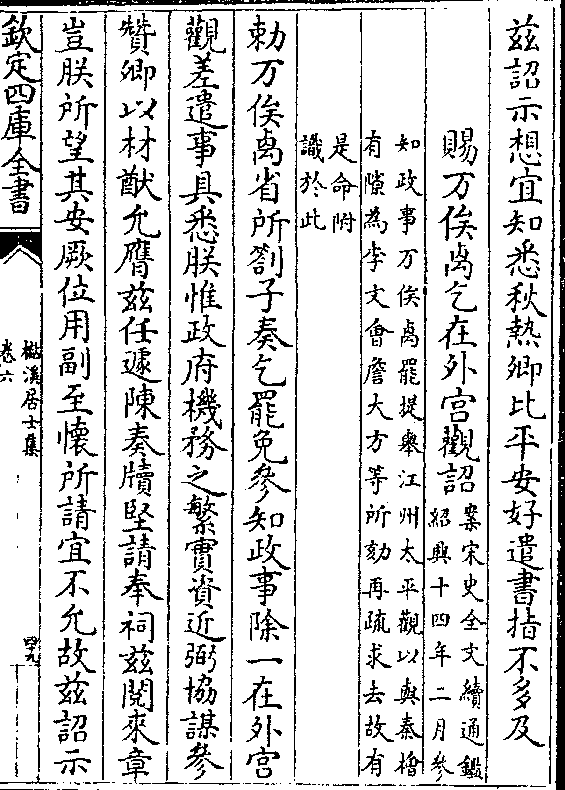 兹詔示想宜知悉秋熱卿比平安好遣書指不多及
賜万俟卨乞在外宫觀詔
案宋史全文續通鑑
紹興十四年二月參
知政事万俟卨罷提舉江州太平觀以與秦檜
有隙為李文會詹大方等所劾再疏求去故有
是命附
識於此
勅万俟卨省所劄子奏乞罷免參知政事除一在外宫
觀差遣事具悉朕惟政府機務之繁實資近弼協謀參
贊卿以材猷允膺兹任遽陳奏牘堅請奉祠兹閱來章
豈朕所望其安厥位用副至懷所請宜不允故兹詔示
欽定四庫全書
樾溪居士集
卷六
四九